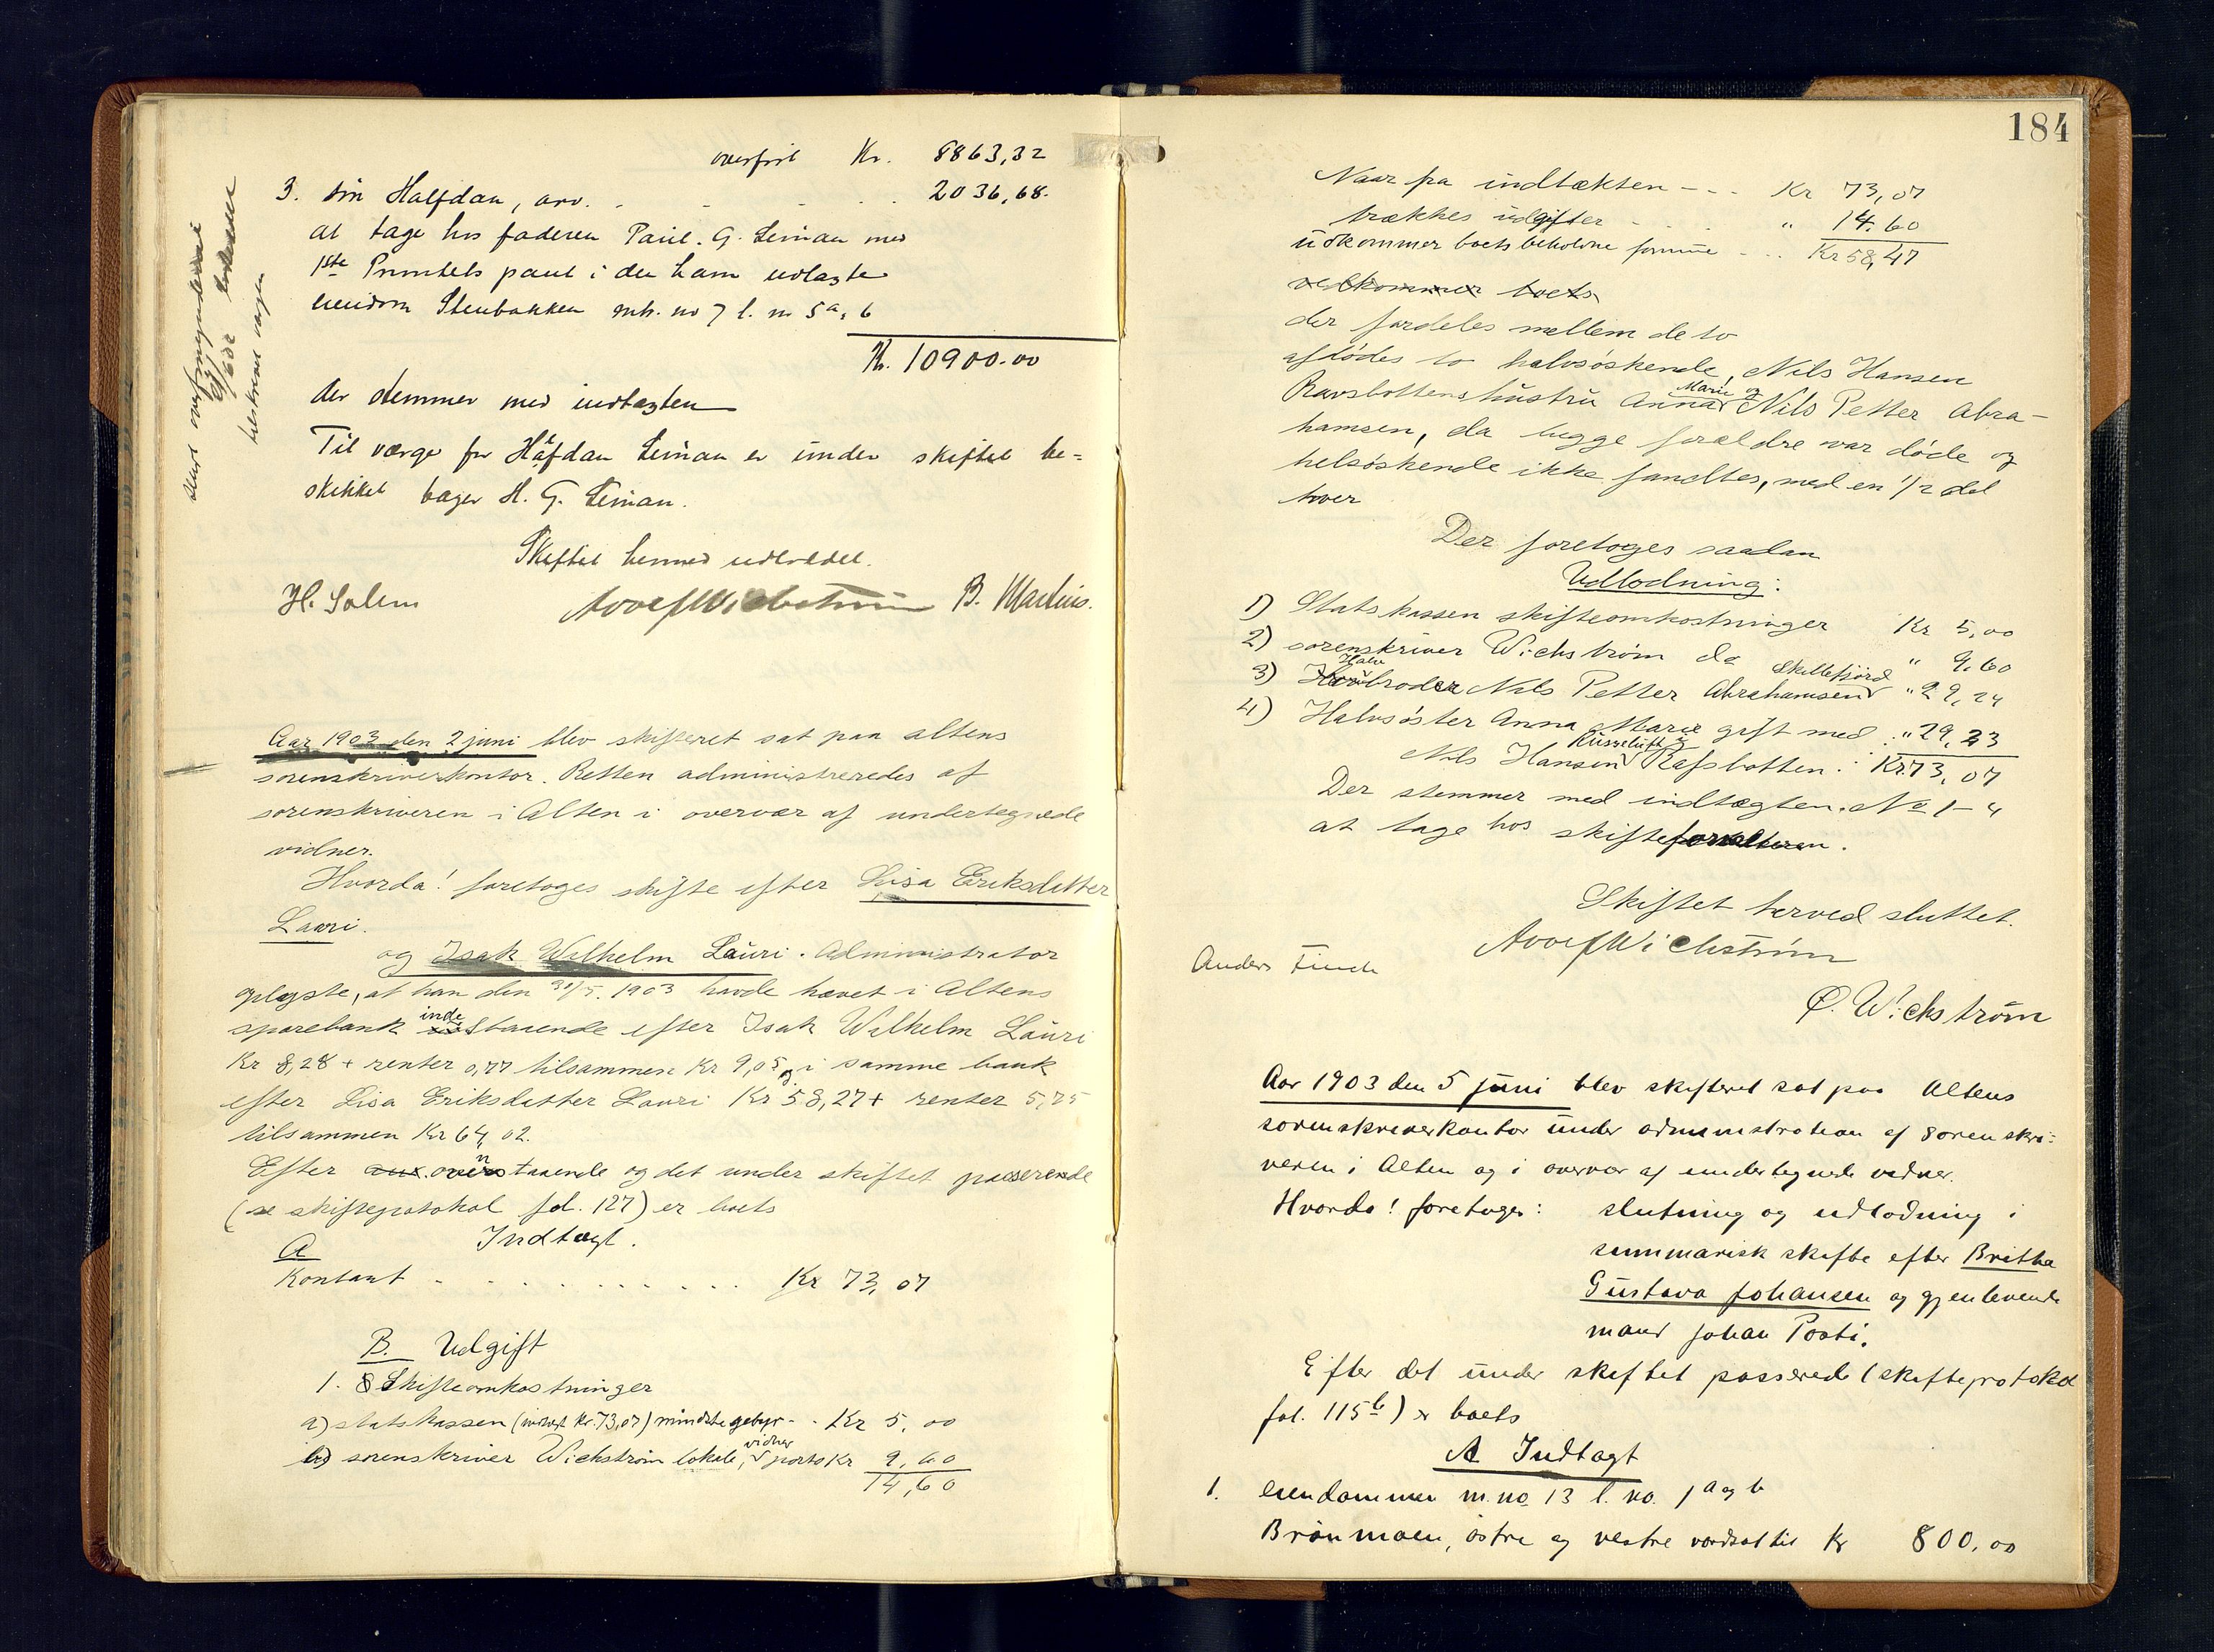 overført Kr. 8863,32
3. søn Halfdan, arv. . . . . 2036,68.
at tage hos faderen Paul. G. Leinan med
1ste Prioritets pant i den ham udlagte
eiendom Stenbakken mb. no 7 l. no 5 a, b
Kr. 10900.00
der stemmer med indtægten
Til værge for Halfdan Leinan er under skiftet be=
skikket bager H. G. Leinan.
Skiftet hermed udsluttet.
H. Salem Adolf Wichstrøm B.
Aar 1903 den 2 juni blev skifteret sat paa Altens
sorenskriverkontor. Retten administreredes af
sorenskriveren i Alten i overvær af undertegnede
vidner.
Hvorda! foretoges skifte efter Lisa Eriksdatter
Lauri.
og Isak Wilhelm Lauri. Administrator
oplyste, at han den 30/5. 1903 havde hævet i Altens
sparebank indestaaende efter Isak Wilhelm Lauri
Kr 8,28 + renter 0,77 tilsammen Kr 9,05 og i samme bank
efter Lisa Eriksdatter Lauri Kr 58,27 + renter 5,75
tilsammen Kr 64,02.
Efter ovenstaaende og det under skiftet passerende
(se skifteprotokol fol. 127) er boets
A Indtægt.
Kontant . . . . . . . . . Kr 73,07
B. Udgift
1. Skifteomkostninger
a) statskassen (indtægt Kr. 73,07) mindstegebyr - . Kr 5,00
b) sorenskriver Wichstrøm lokale, vidner porto Kr 9,60
14,60
184
Naar fra indtækten - - - Kr 73,07
trækkes udgifter . . . " 14.60
udkommer boets beholdne formue - .. Kr 58,47
vedkommer boets
der fordeles mellem de to
afdødes to halvsøskende, Nils Hansen
Ravsbottens hustru Anna Marie og Nils Petter Abra-
hamsen, da begge forældre var døde og
helsøskende ikke fandtes, med en 1/2 del
hver
Der foretoges saadan
Udlodning:
1) Statskassen skifteomkostninger Kr 5,00
2) sorenskriver Wichstrøm do " 9.60
3) Halvbroder Nils Petter Abrahamsen Skillefjord " 29,24
4) Halvsøster Anna Marie gift med : " 29,23
Nils Hansen Russeluft Rafsbotten. : Kr. 73,07
Der stemmer med indtægten. No 1 - 4
at tage hos skifteforvalteren.
Skiftet herved sluttet.
Adolf Wichstrøm
Anders
Ø. Wichstrøm
Aar 1903 den 5 juni blev skifteret sat paa Altens
sorenskriverkontor under administration af sorenskri=
veren i Alten og i overvær af undertegnede vidner.
Hvorda! foretoges: slutning og udlodning i
summarisk skifte efter Britha
Gustava Johansen og gjenlevende
mand Johan Posti.
Efter det under skiftet passerede (skifteprotokol
fol. 115 b) er boets
A Indtægt
1. eiendommen m.no 13 l. no. 1 a og b
Brønmoen, østre og vestre værdsat til Kr 800.00